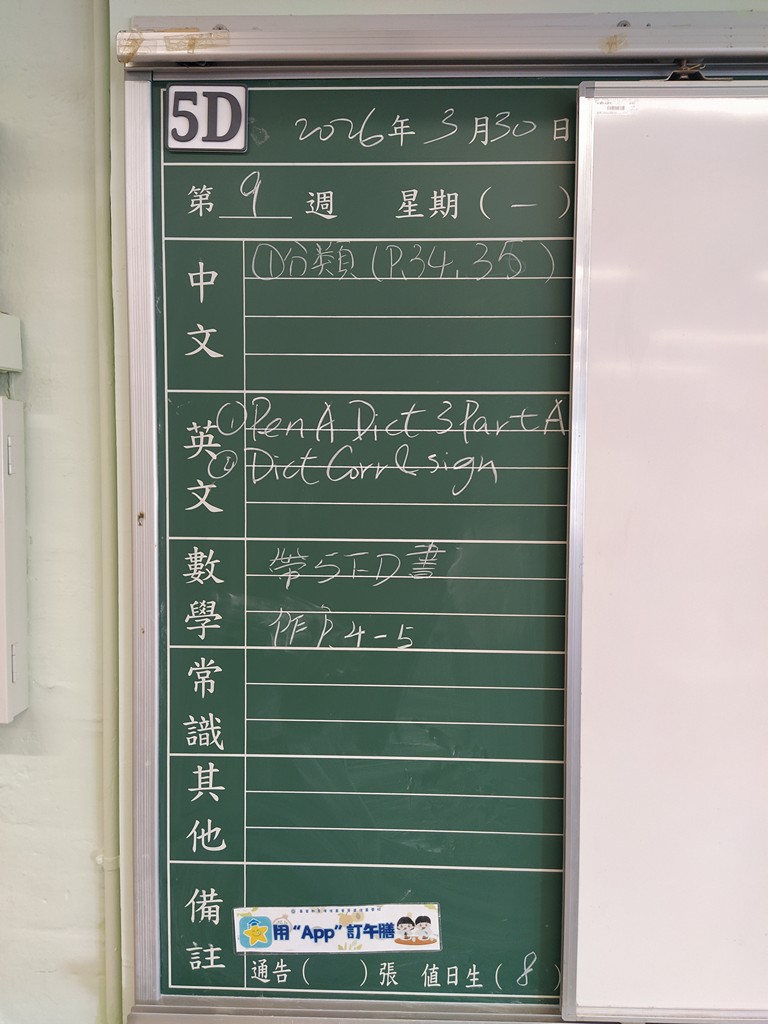 5D
2026年3月30日
第9週 星期(一)
中文
①分類(P.34,35)
英文
①Pen A Dict 3 Part A
②Dict Corr & sign
數學
帶5下D書
作P.4-5
常識
其他
備註
用“App”訂午膳
通告( )張 值日生(8)